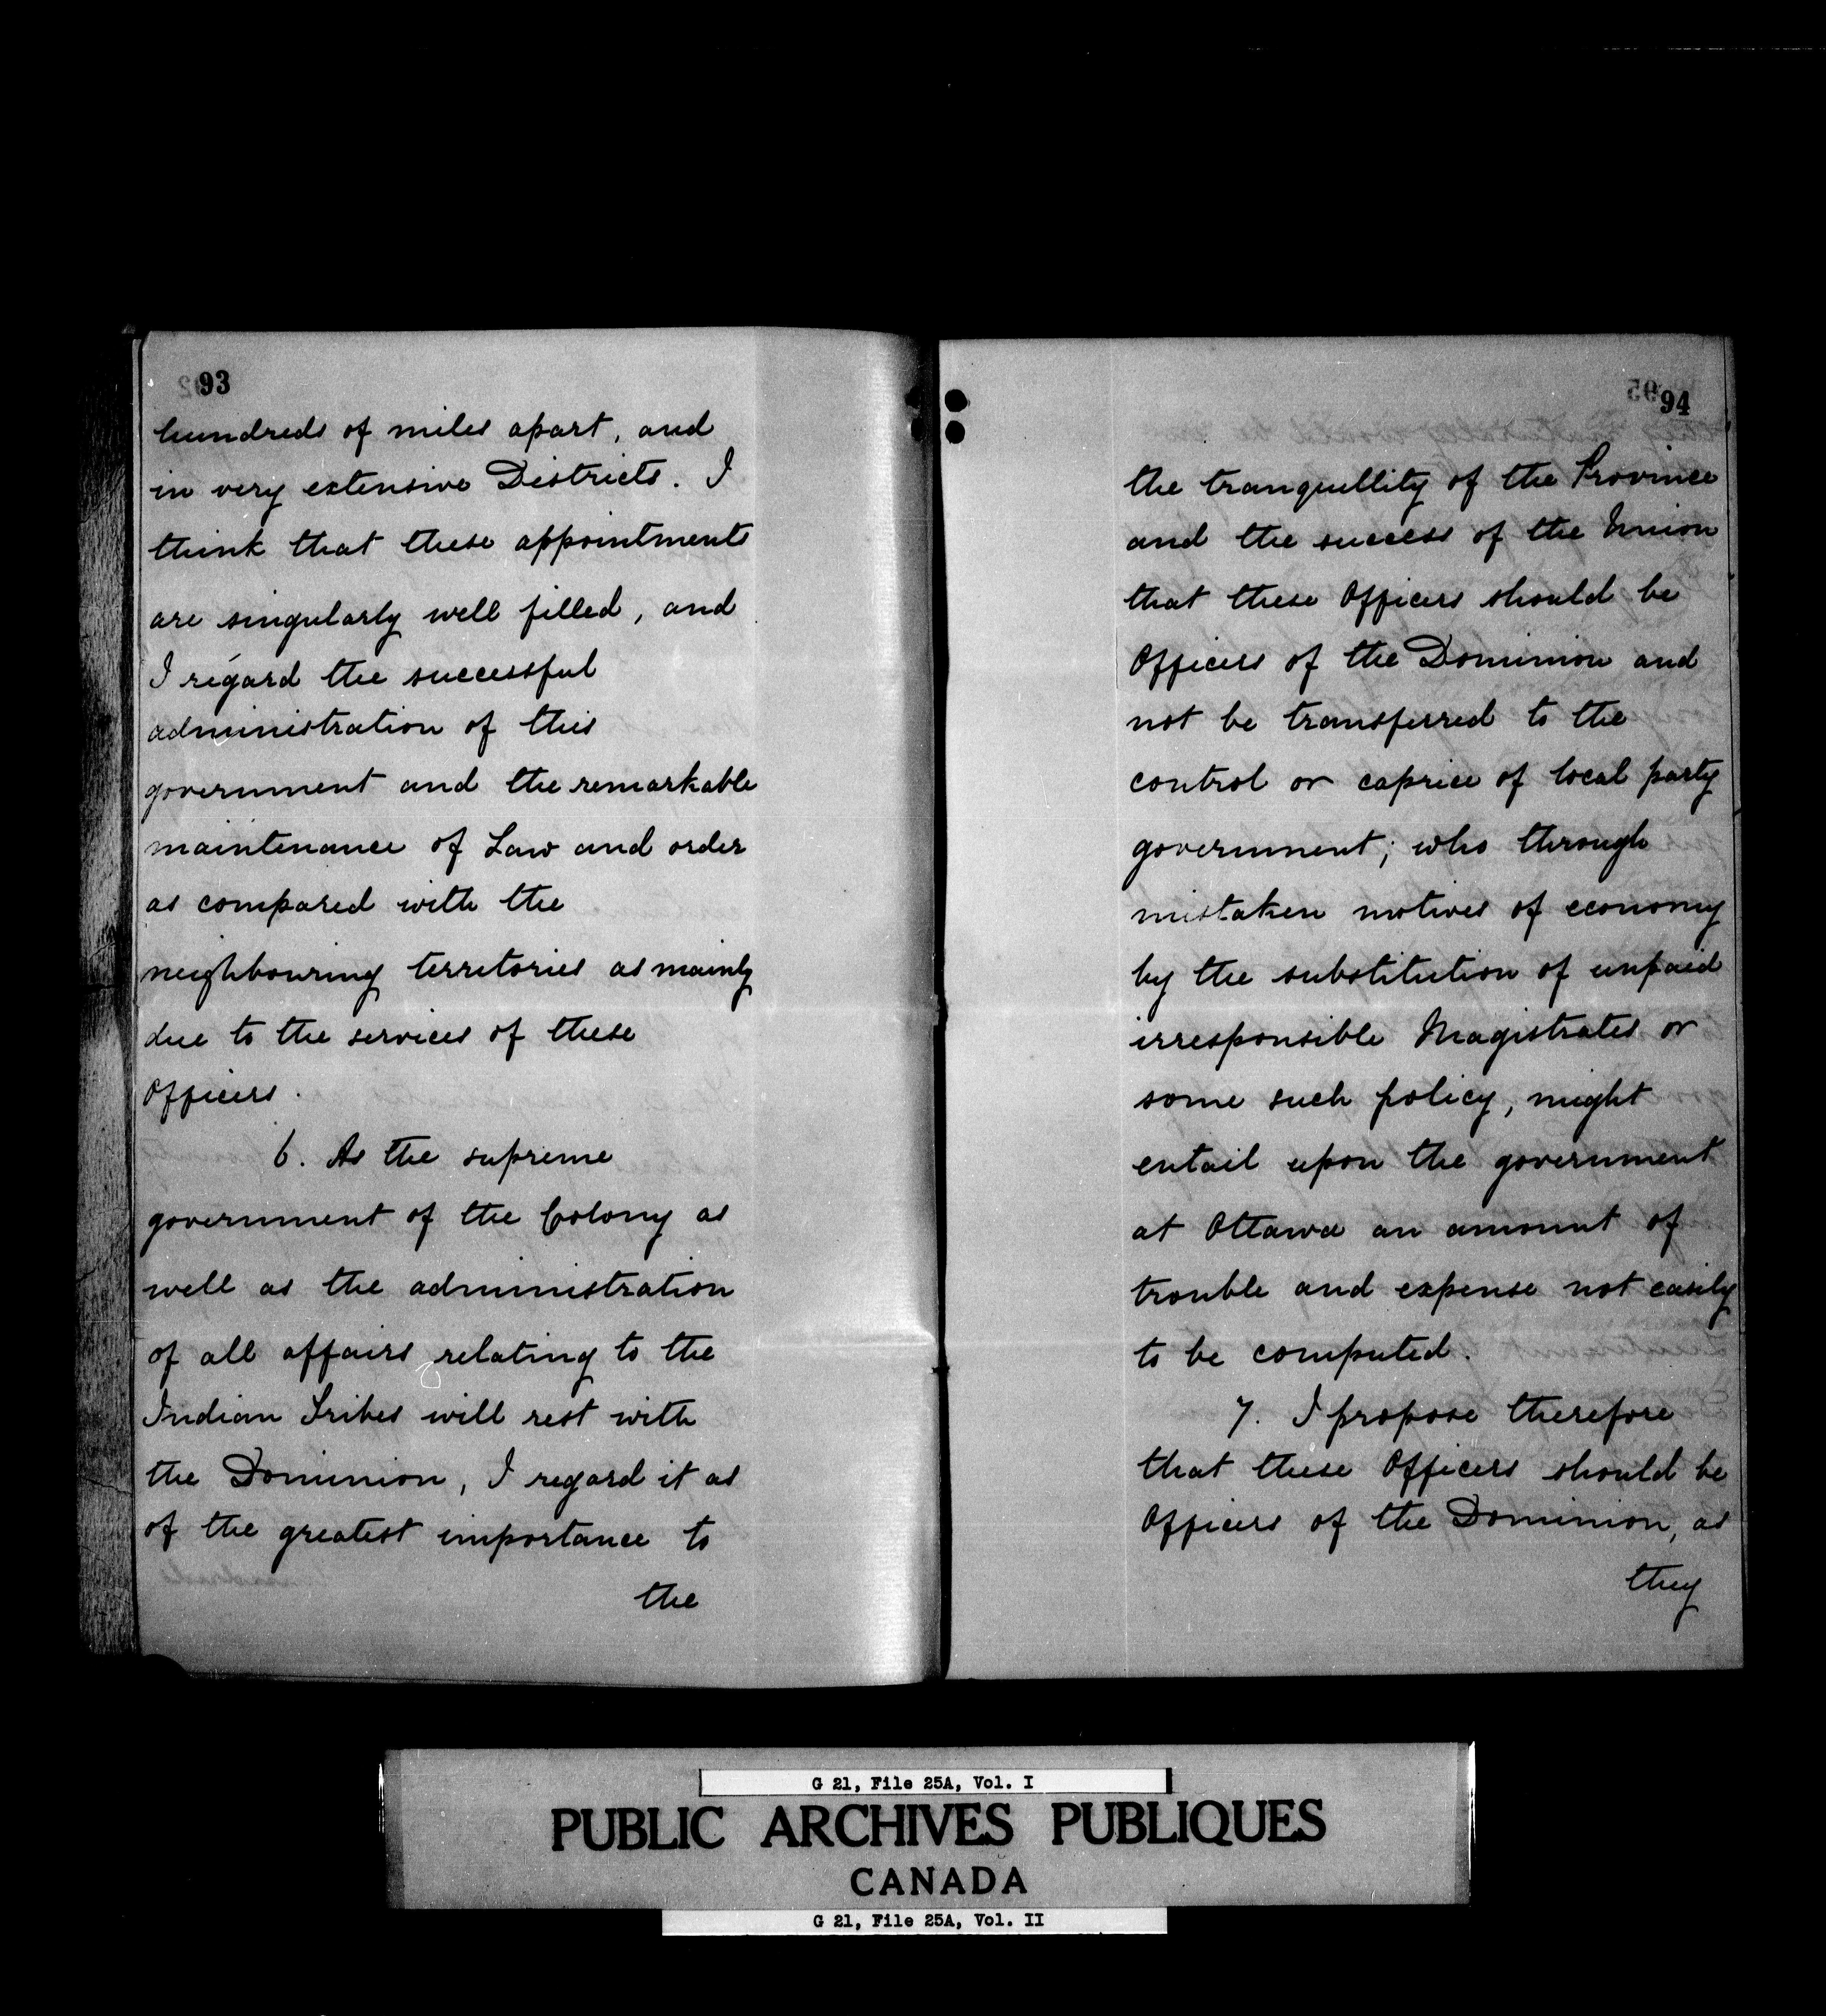 93
hundreds of miles apart, and
in very extensive Districts. I
think that these appointments
are singularly well filled, and
I regard the successful
administration of this
government and the remarkable
maintenance of Law and order
as compared with the
neighbouring territories as mainly
due to the services of these
Officers.
6. As the supreme
government of the Colony as
well as the administration
of all affairs relating to the
Indian Tribes will rest with
the Dominion, I regard it as
of the greatest importance to
the
94
the tranquillity of the Province
and the success of the Union
that these Officers should be
Officers of the Dominion and
not be transferred to the
control or caprice of local party
government; who through
mistaken motives of economy
by the substitution of unpaid
irresponsible Magistrates or
some such policy, might
entail upon the government
at Ottawa an amount of
trouble and expense not easily
to be computed.
7. I propose therefore
that these Officers should be
Officers of the Dominion, as
they
G 21, File 25A, Vol. I
PUBLIC ARCHIVES PUBLIQUES
CANADA
G 21, File 25A, Vol. II